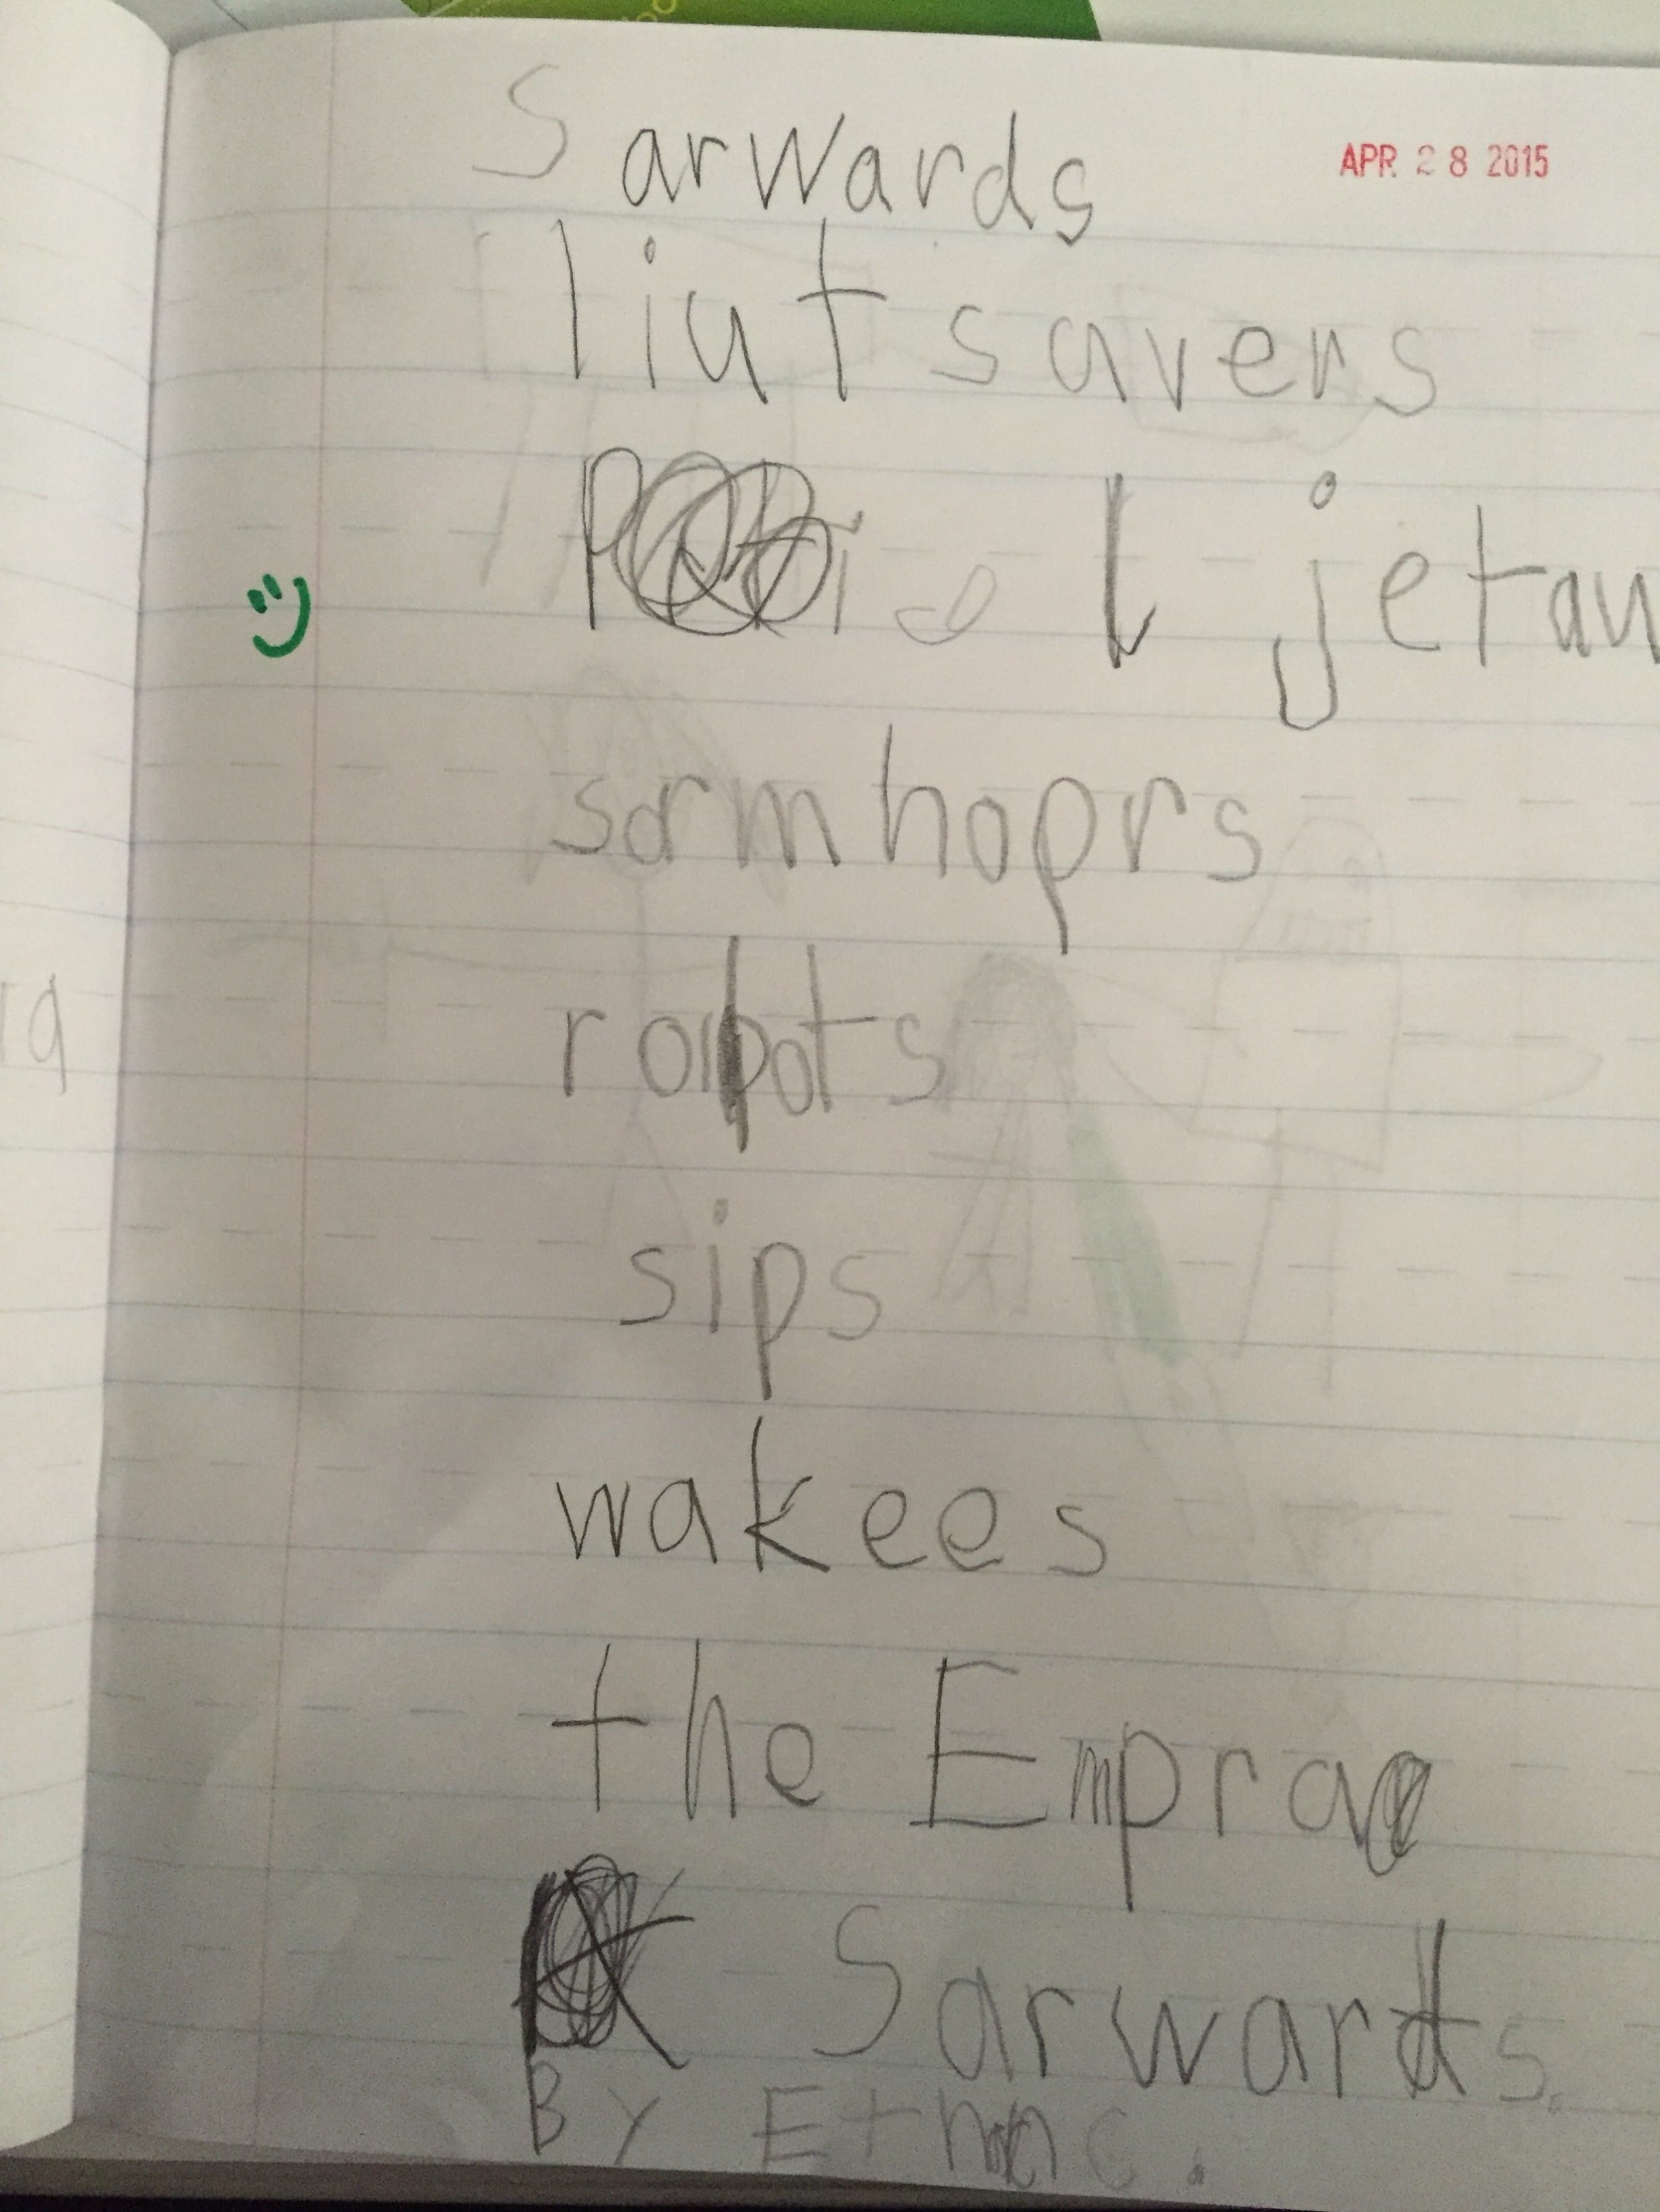 Sarwards
APR 28 2015
liut savers
jetau
sormhoprs
robots
sips
wakees
the Empra
Sarwards.
By Ethan C.